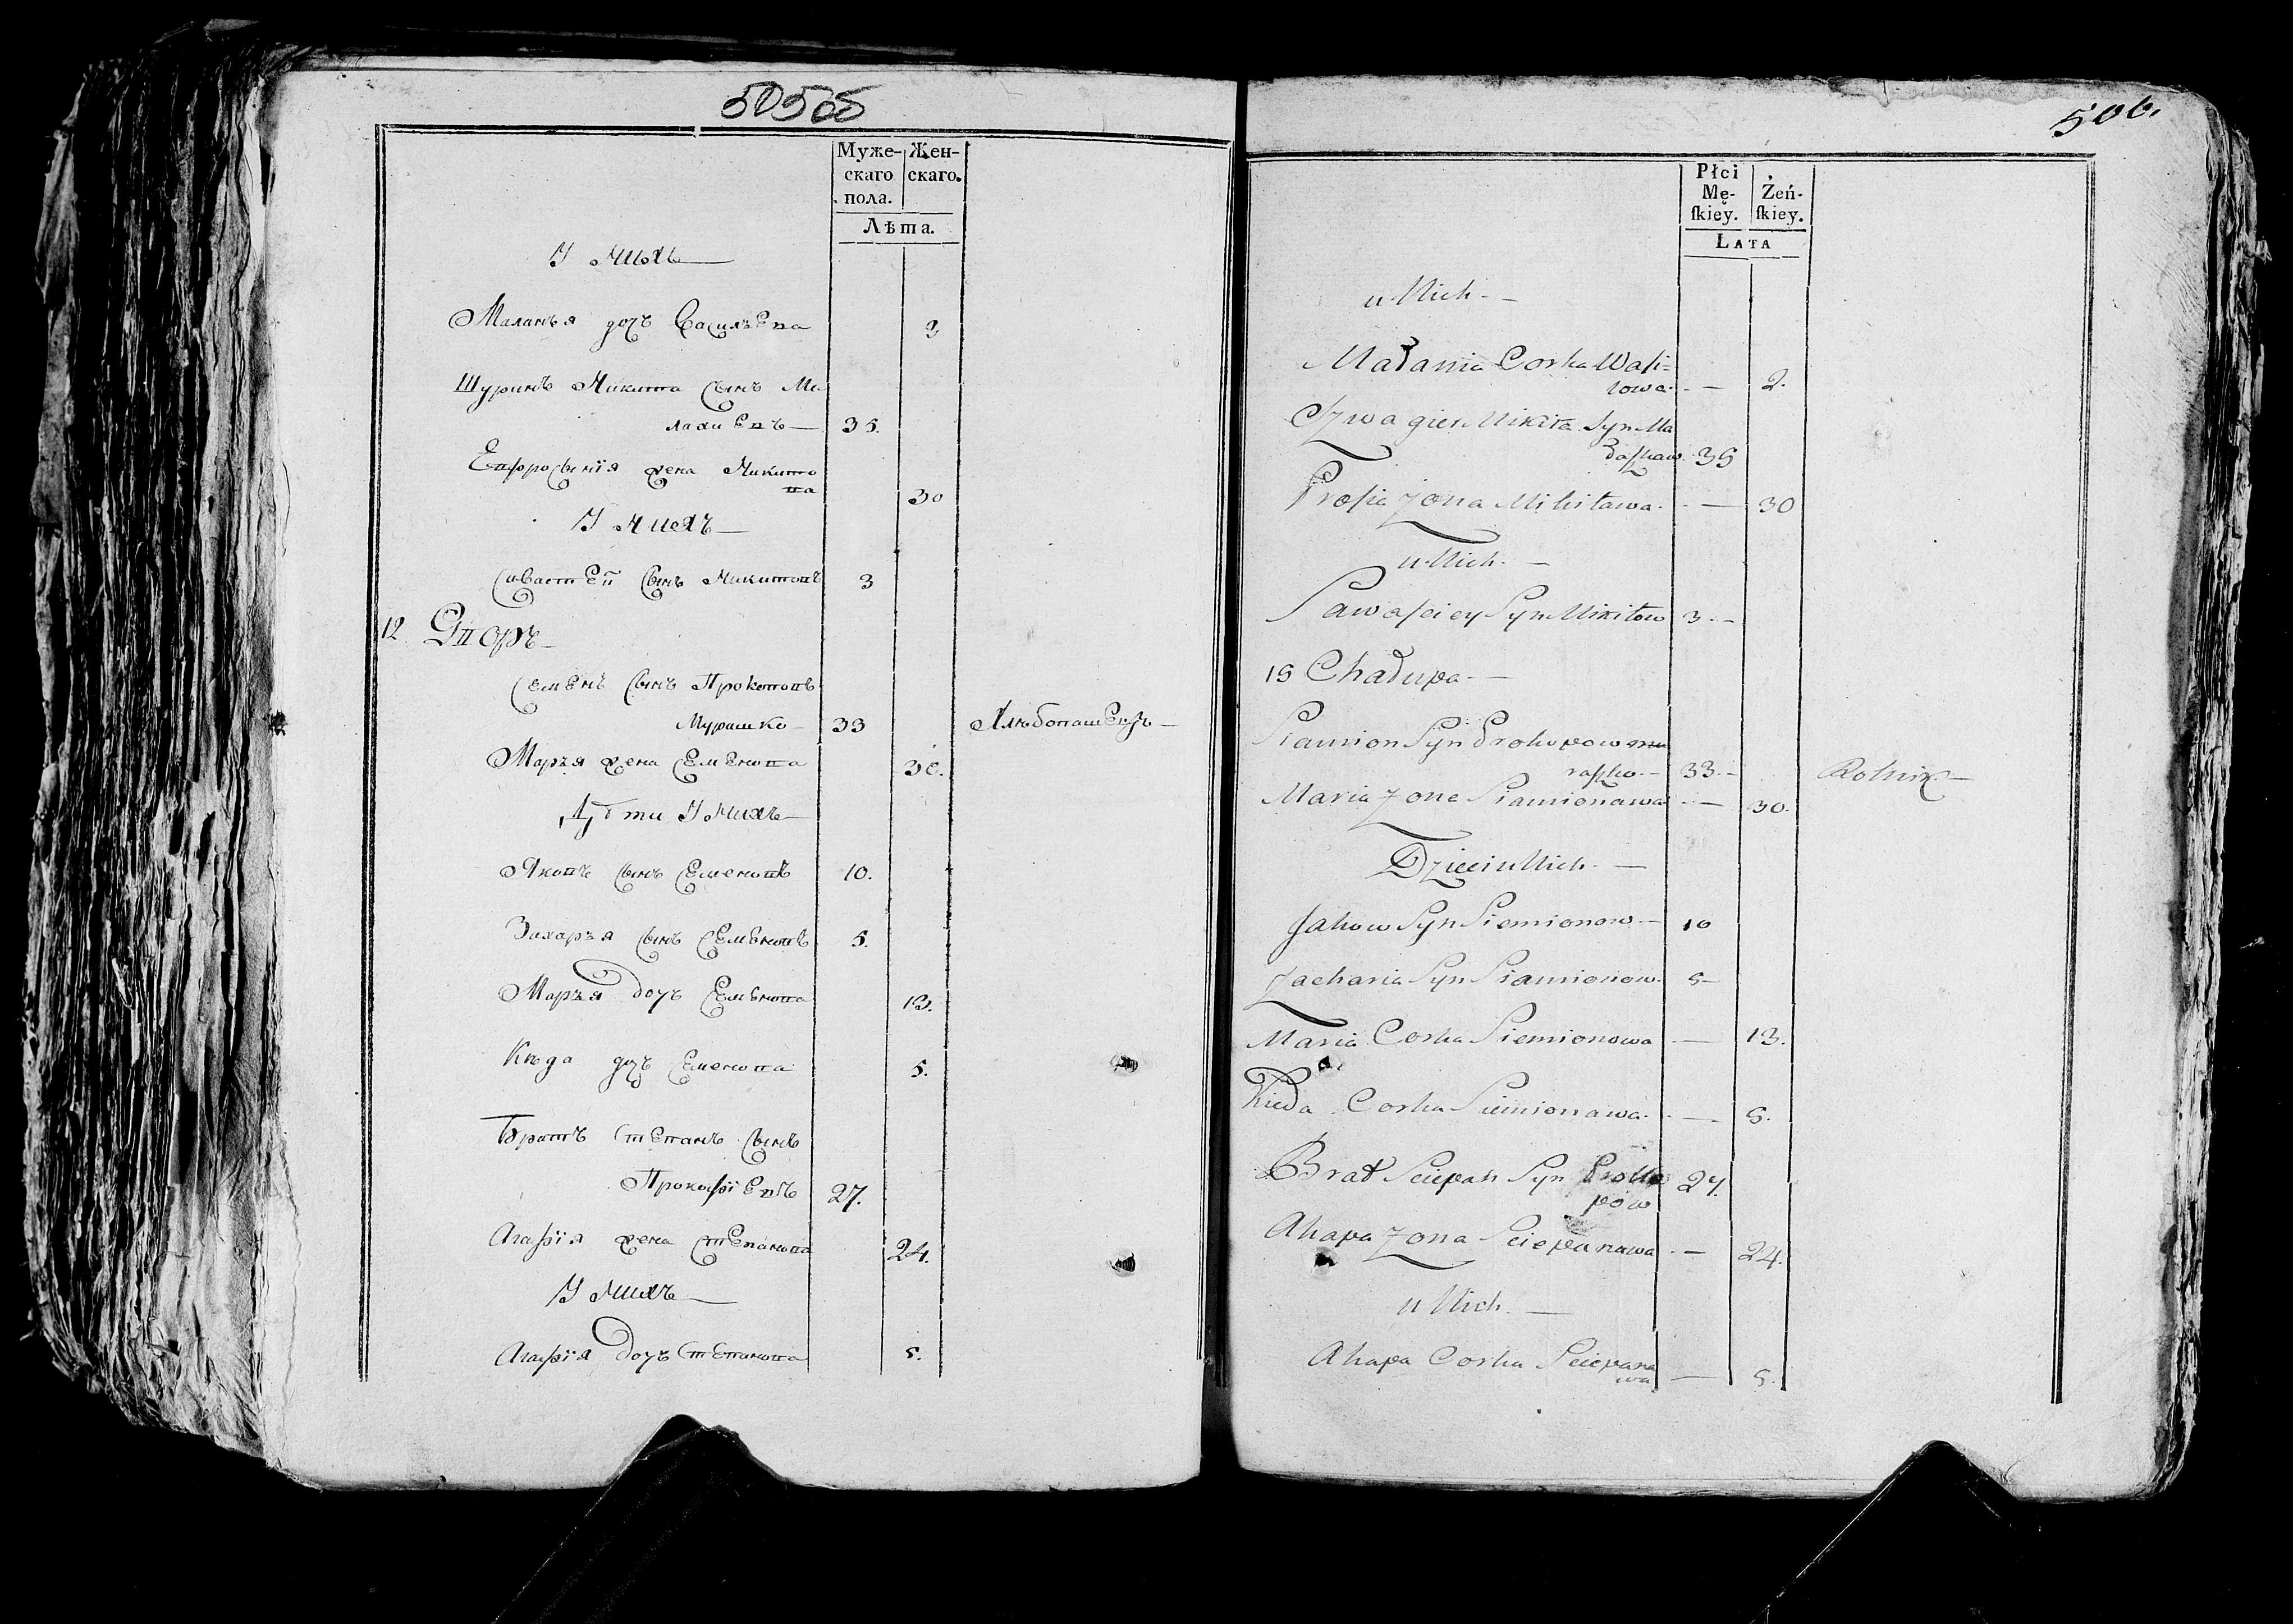 50505
Муже-
скаго
пола.
Жен-
скаго.
Лѣта.
У нихъ
Маланья дочь Васильева 2
Шуринъ Никита сынъ Ма
35.
Ефросинія жена Никито
ва 30
У нихъ
Савастей сынъ Никитовъ 3
12 Дворъ
Семенъ сынъ Прокоповъ
Мурашко 33 Хлѣбопашецъ
Марья жена Семенова 30.
Дѣти У нихъ
Яковъ сынъ Семеновъ 10.
Захарья сынъ Семеновъ 5.
Марья дочь Семенова 13.
Кѣда дочь Семенова 5.
Братъ Степанъ сынъ
Прокофіевъ 27.
Агафія жена Степанова 24.
У нихъ
Агафія дочь Степанова 5.
506.
Płci
Mę-
skiey.
Żeń-
skiey.
LATA
u Nich
Małania Corka Wasi=
lowa 2.
Szwagier Mikita Syn Ma
35
Prosia Zona Mikitawa 30
u Nich
Sawasciey Syn Mikitow 3
15 Chałupa
Siamion Syn Prokopow Mu
raszko 33 Rolnik
Maria Zona Siamionawa 30.
Dzieci u Nich
Jakow Syn Siemionow 10
Zacharia Syn Siamionow 5
Maria Corka Siemionowa 13.
Kieda Corka Siemionawa 5.
Brat Sciepan Syn Proko
pow 27.
Ahapa Zona Sciepanawa 24.
u Nich
Ahapa Corka Sciepana
wa 5.